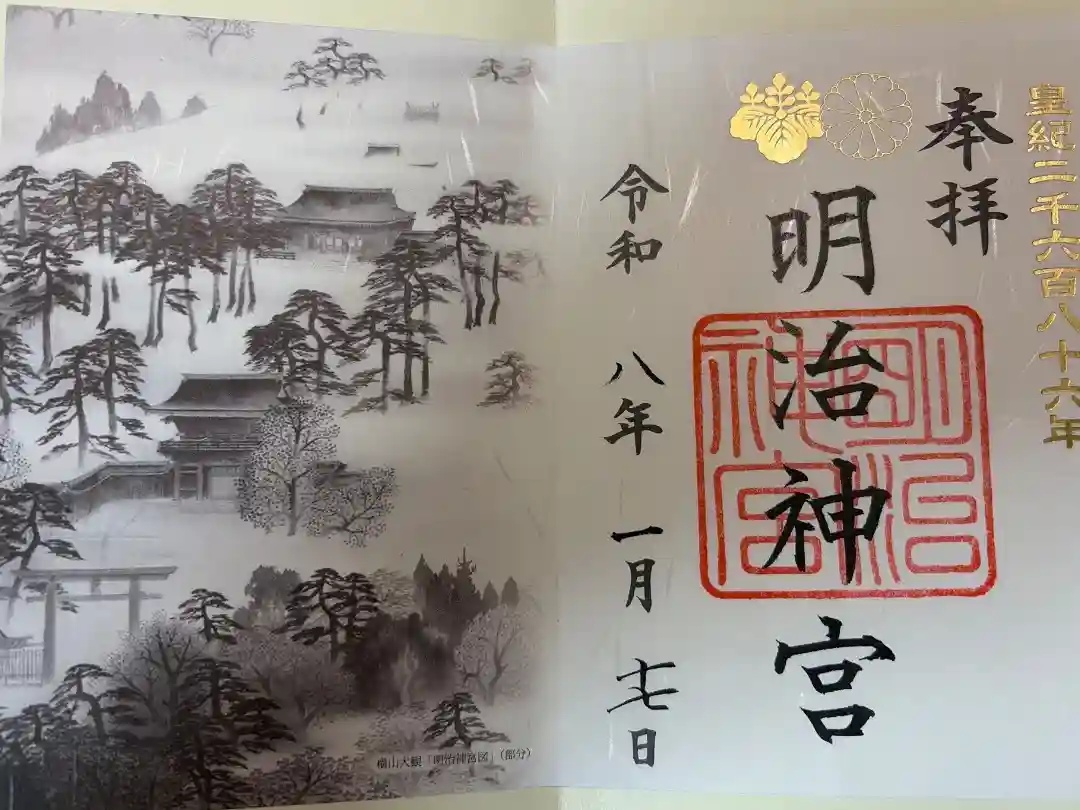 皇紀二千六百八十六年
奉拝
明治神宮
明治
神宮
令和八年一月十七日
横山大観「明治神宮図」(部分)